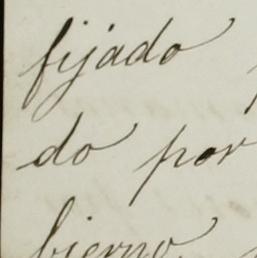 fijado
do por
bierno